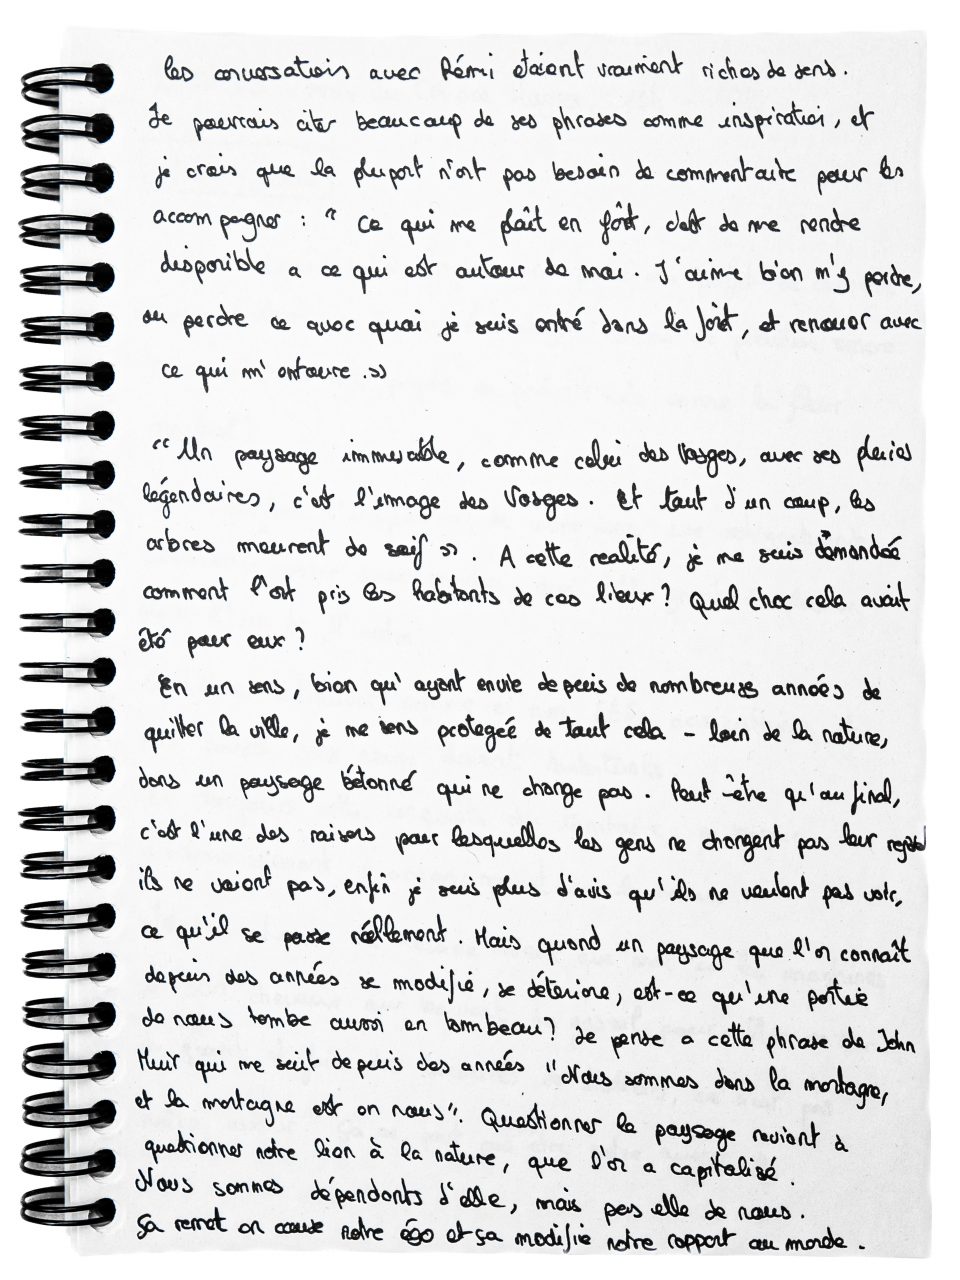 les conversations avec Rémi étaient vraiment riches de sens.
Je pourrais citer beaucoup de ses phrases comme inspiration, et
je crois que la plupart n'ont pas besoin de commentaire pour les
accompagner : " Ce qui me plaît en fôrêt, c'est de me rendre
disponible a ce qui est autour de moi. J'aime bien m'y perdre,
ou perdre ce avec quoi je suis entré dans la forêt, et renouer avec
ce qui m'entoure. »
" Un paysage immuable, comme celui des Vosges, avec ses pluies
légendaires, c'est l'image des Vosges. Et tout d'un coup, les
arbres meurent de soif ». A cette realité, je me suis demandée
comment l'ont pris les habitants de ces lieux ? Quel choc cela avait
été pour eux ?
En un sens, bien qu'ayant envie depuis de nombreuses années de
quitter la ville, je me sens protegée de tout cela - loin de la nature,
dans un paysage bétonné qui ne change pas. Peut-être qu'au final,
c'est l'une des raisons pour lesquelles les gens ne changent pas leur
ils ne voient pas, enfin je suis plus d'avis qu'ils ne veulent pas voir,
ce qu'il se passe réellement. Mais quand un paysage que l'on connaît
depuis des années se modifie, se déteriore, est-ce qu'une partie
de nous tombe aussi en lambeau ? Je pense a cette phrase de John
Muir qui me suit depuis des années "Nous sommes dans la montagne,
et la montagne est en nous". Questionner le paysage revient à
questionner notre lien à la nature, que l'on a capitalisé.
Nous sommes dépendants d'elle, mais pas elle de nous.
Ça remet en cause notre égo et ça modifie notre rapport au monde.